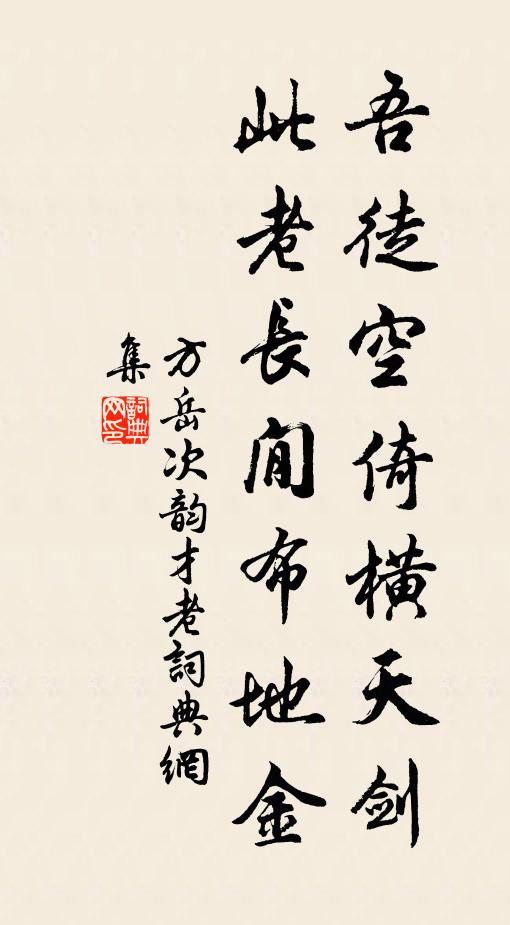 吾徒空倚橫天劍
此老長閒布地金
方岳次韵才老詞典網
集
詞典
网印